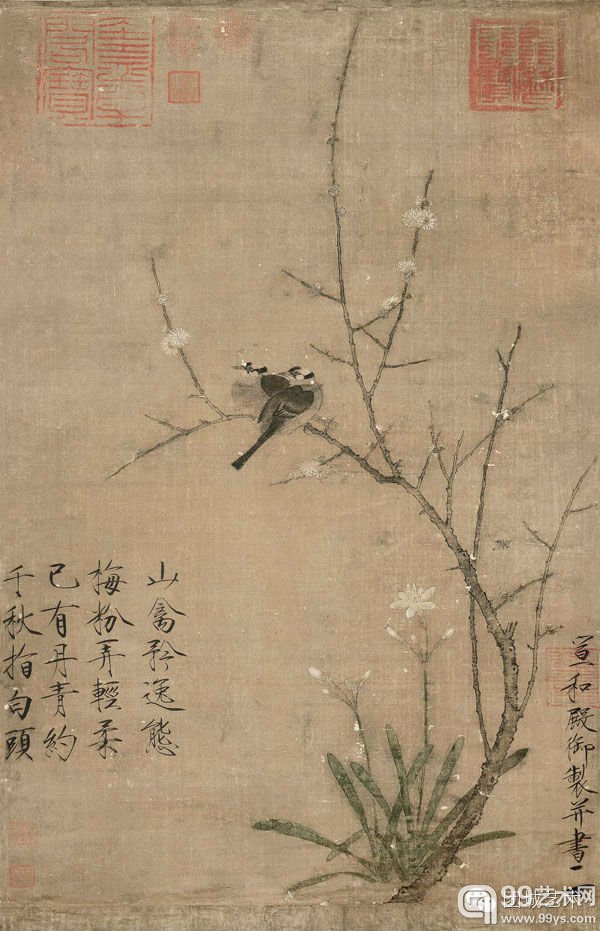 山禽矜逸態
梅粉弄輕柔
已有丹青約
千秋指白頭
宣和殿御製并書
99艺术网
www.99ys.com